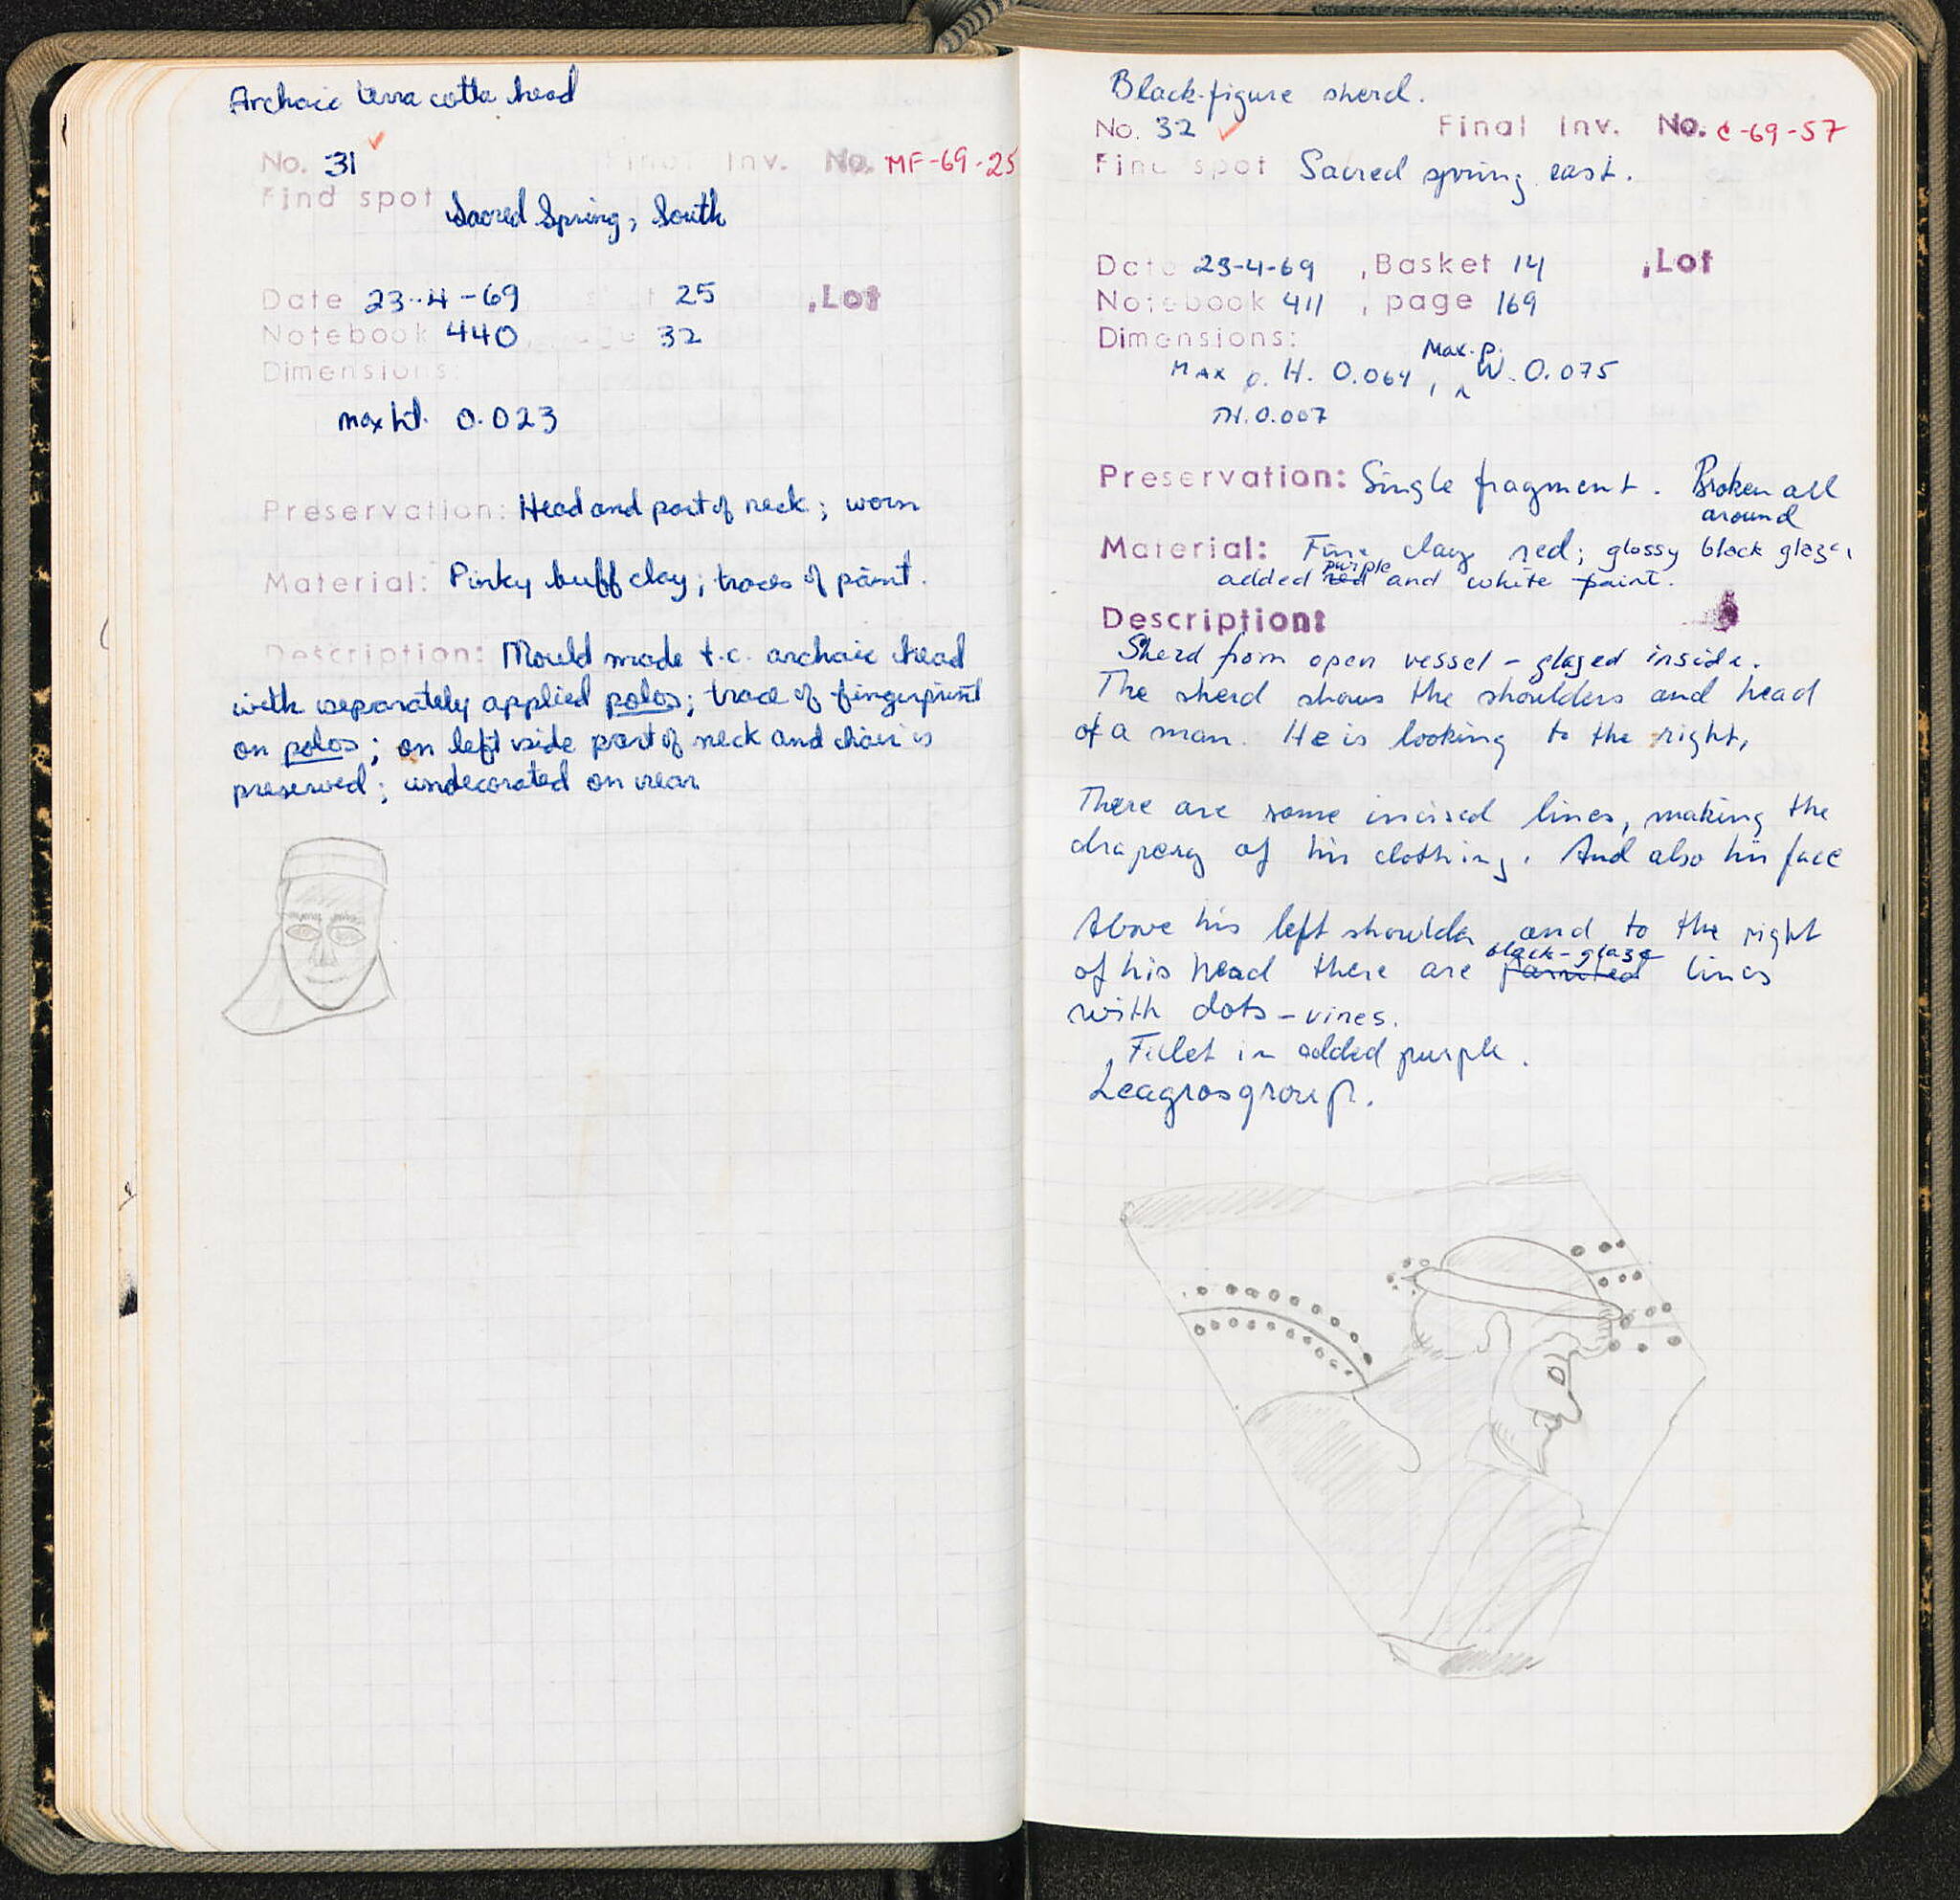 Archaic terra cotta head
No. 31 Final Inv. No. MF-69-25
Find spot Sacred Spring, South
Date 23-4-69 25 , Lot
Notebook 440, 32
Dimensions:
max ht. 0.023
Preservation: Head and part of neck; worn
Material: Pinky buff clay; traces of paint.
Description: Mould made t.c. archaic head
with separately applied polos; trace of fingerprint
on polos; on left side part of neck and hair is
preserved; undecorated on rear
Black-figure sherd.
No. 32 Final Inv. No. C-69-57
Find spot Sacred spring east.
Date 23-4-69 , Basket 14 , Lot
Notebook 411 , page 169
Dimensions:
Max p. H. 0.064, Max. p. W. 0.075
Th. 0.007
Preservation: Single fragment. Broken all
around
Material: Fine clay red; glossy black glaze,
added red purple and white paint.
Description:
Sherd from open vessel - glazed inside.
The sherd shows the shoulders and head
of a man. He is looking to the right,
There are some incised lines, making the
drapery of his clothing. And also his face
Above his left shoulder and to the right
of his head there are painted black-glaze lines
with dots - vines.
Fillet in added purple.
Leagros group.